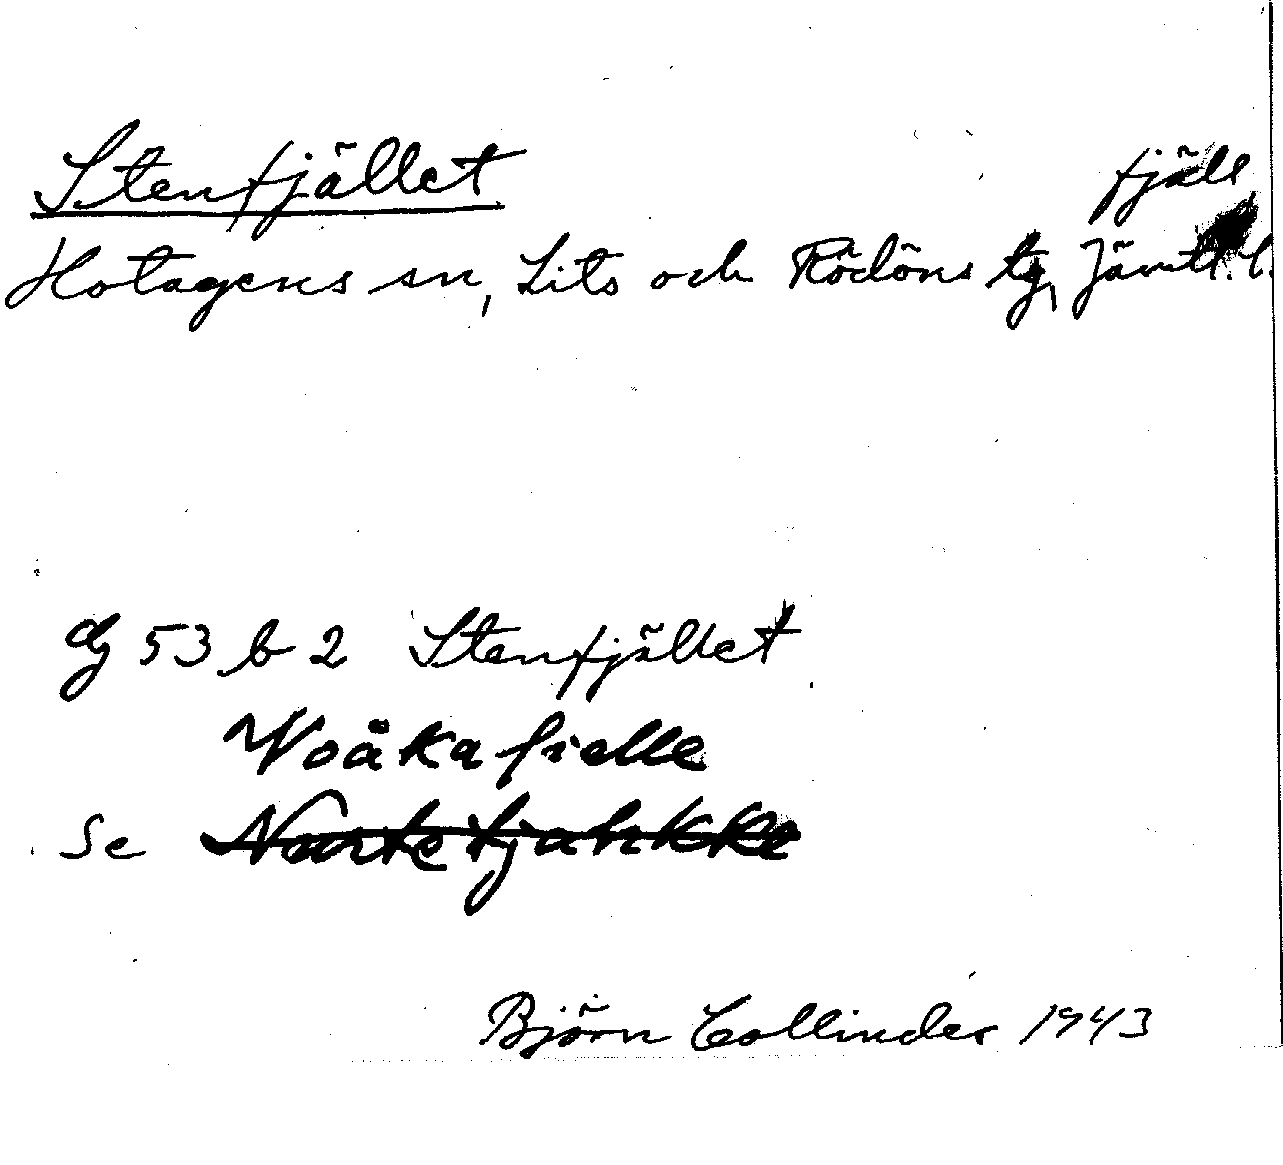 Stenfjället fjäll
Hotagens sn, Lits och Rödöns tg, Jämtl. l.
53 b 2 Stenfjället
Voåkafielle
Se
Björn Collinder 1943